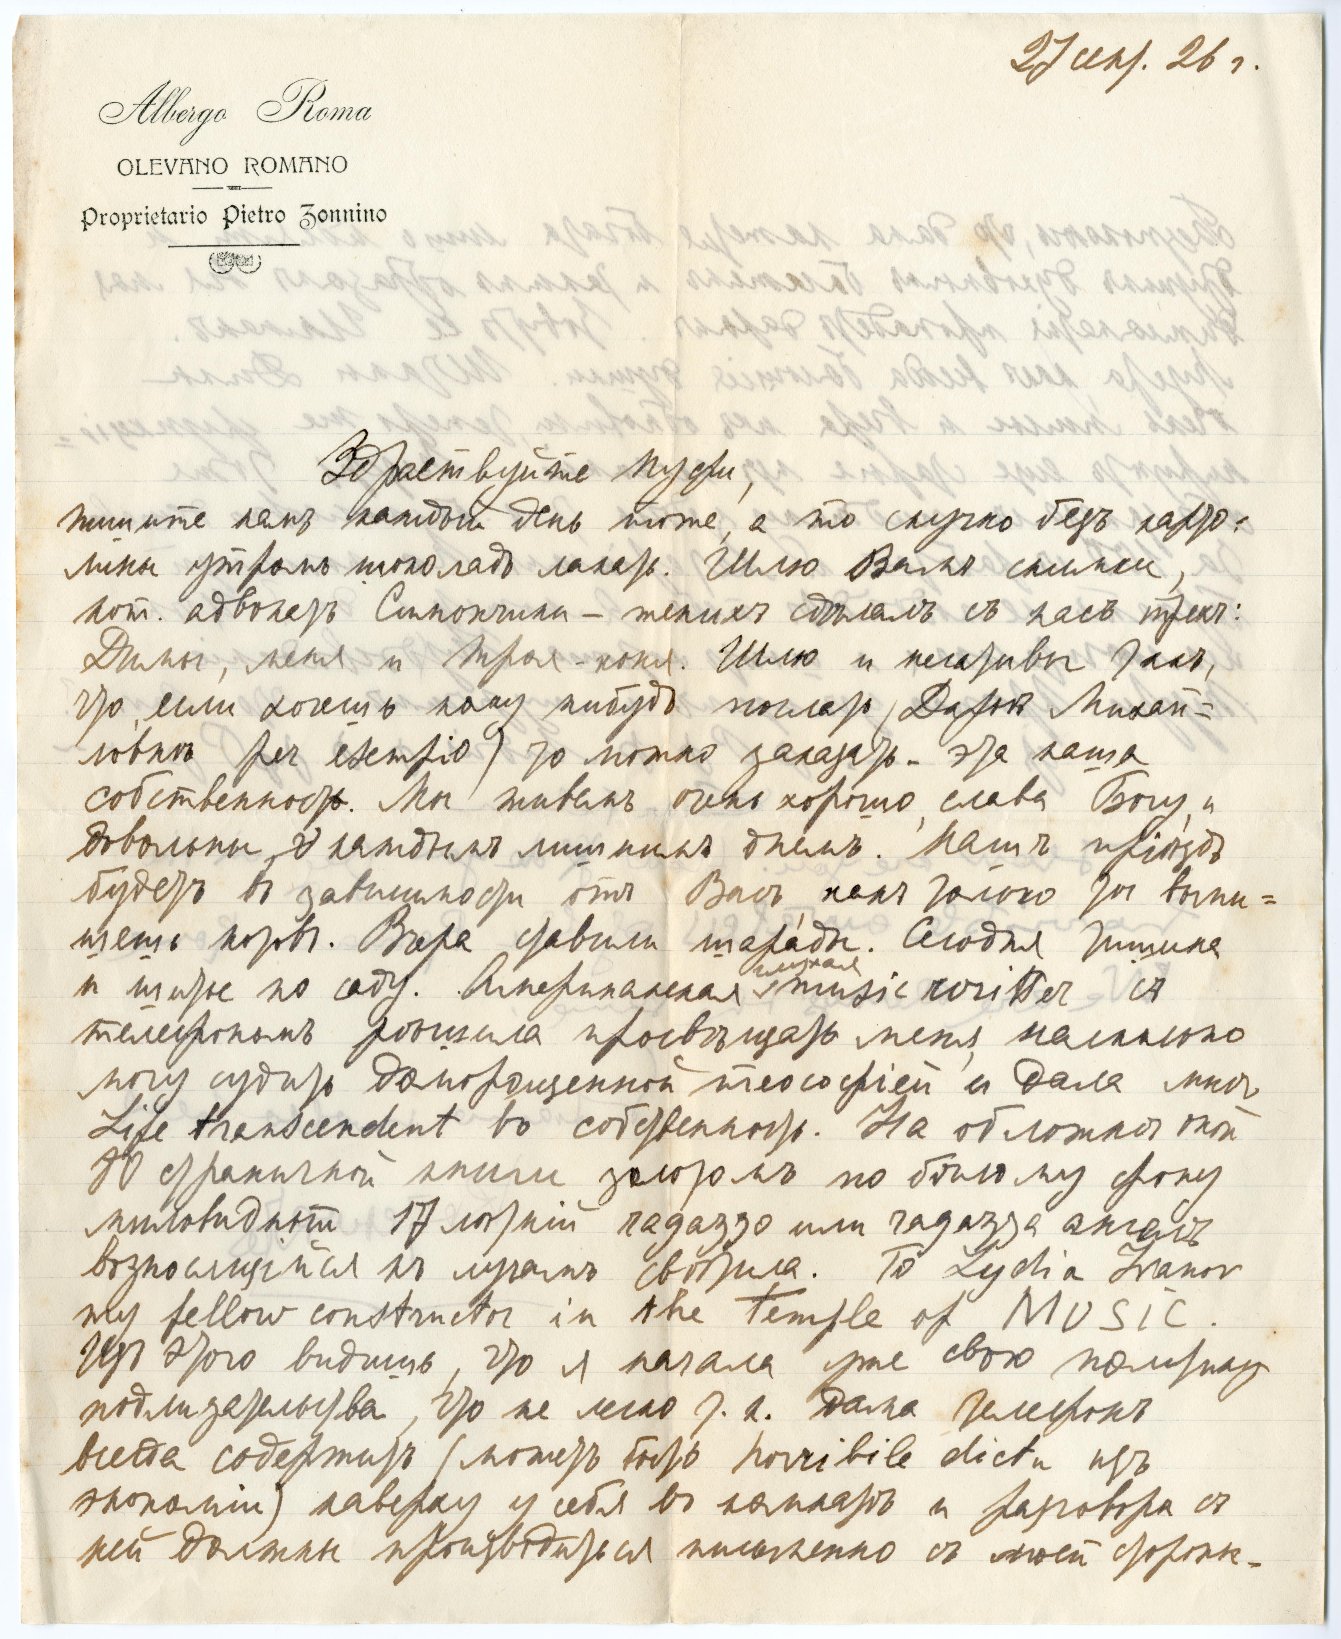 27 сент. 26 г.
Albergo Roma
OLEVANO ROMANO
Proprietario Pietro Zonnino
Здраствуйте Пуфи,
пишите намъ каждый день тоже, а то скучно безъ карто-
лины утромъ шоколадъ лакать. Шлю Вамъ снимки,
кот. адвокатъ Симончини – женихъ сдѣлалъ съ насъ трехъ:
Димы, меня и Троя-коня. Шлю и негативы такъ,
что, если хочешь кому нибудь послать (Дарьѣ Михай=
ловнѣ per esempio) то можно заказать – эта наша
собственность. Мы живемъ очень хорошо, слава Богу, и
довольны каждымъ лишнимъ днемъ. Нашъ пріѣздъ
будетъ въ зависимости отъ Васъ, какъ только ты выпи=
шешь поѣд. Вчера ставили шарады. Сегодня тишина
и тихо по саду. Американская глухая music writter съ
телефономъ рѣшила просвѣщать меня, насколько
могу судить доморощенной теософіей и дала мнѣ
Life transcendent въ собственность. На обложкѣ этой
80 страничной книги золотомъ по бѣлому фону
миловидный 17 лѣтній рагаццо или рагацца ангелъ
возносящійся къ лучамъ свѣтила. To Lydia Ivanov
my fellow constructor in the Temple of MUSIC.
Изъ этого видишь, что я начала уже свою политику
подлизательства, что не легко т. к. дама телефонъ
всегда содержитъ (можетъ быть horribile dictu изъ
экономіи) наверху у себя въ комнатѣ и разговоры съ
ней должны производиться письменно съ моей стороны–